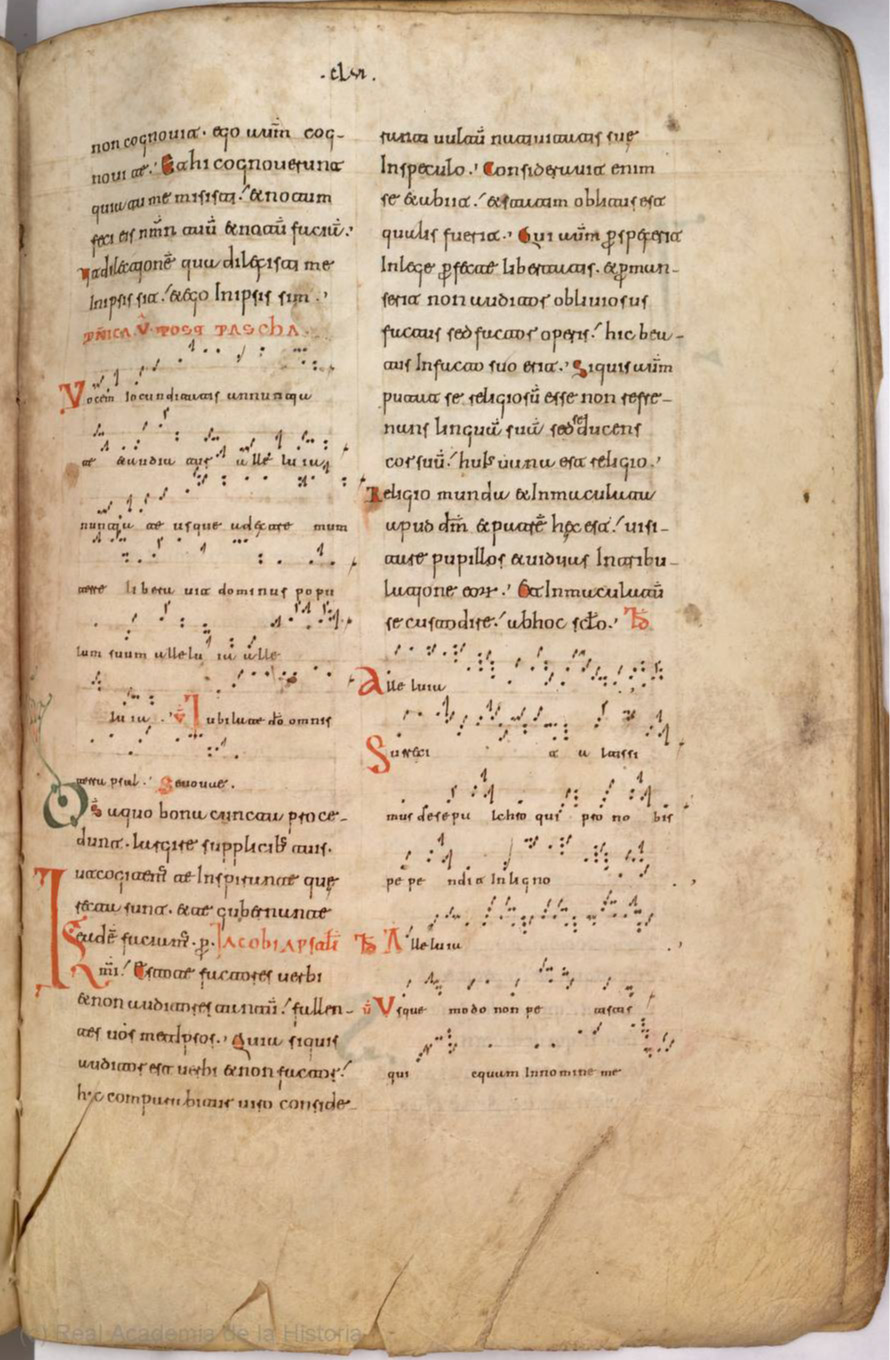 .clvi.
non cognouit. ego aut̄m cog-
noui te. Et hi cognouerunt
quia tu me misisti. & notum
feci eis nm̄n tuū & notū faciā.
ut dilectione qua dilexisti me
In ipsis sit. & ego In ipsis sim.
DN̄ICA V POST PASCHA.
Vocem Iocunditatis annuntia
te & audia tur alle lu ia
nuntia te usque ad extre mum
terre libera uit dominus popu
lum suum allelu ia alle
lu ia. V Iubilate dō omnis
terra psal. Seuouae.
D̄s a quo bona cuncta proce-
dunt. largire supplicib; tuis.
ut cogitem̄ te Inspirante que
recta sunt. & te gubernante
eadē faciam̄. p. Iacobi apl̄i
Kmi. Estote factores uerbi
& non auditores tantū. fallen-
tes uos met Ipsos. Quia siquis
auditor est uerbi & non factor.
hic comparabitur uiro conside-
ranti uultū natiuitatis sue
In speculo. Considerauit enim
se & abiit. & statim oblitus est
qualis fuerit. Qui aut̄m p̄spexerit
In lege p̄fecte libertatis. & p̄man-
serit non auditor obliuiosus
factus sed factor operis. hic bea-
tus In facto suo erit. Siquis aut̄m
putat se religiosū esse non refre-
nans linguā suā sed seducens
cor suū. huius uana est religio.
Religio munda & Inmaculata
apud dm̄ & patrē hec est. uisi-
tare pupillos & uiduas In tribu-
latione eorum. Et Inmaculatū
se custodire. ab hoc sc̄lo.
Alle luia
Surrexi t a ltissi
mus de sepu lchro qui pro no bis
pe pe ndit In ligno
Alleluia
V Vsque modo non pe tistis
qui cquam In nomine me
(c) Real Academia de la Historia